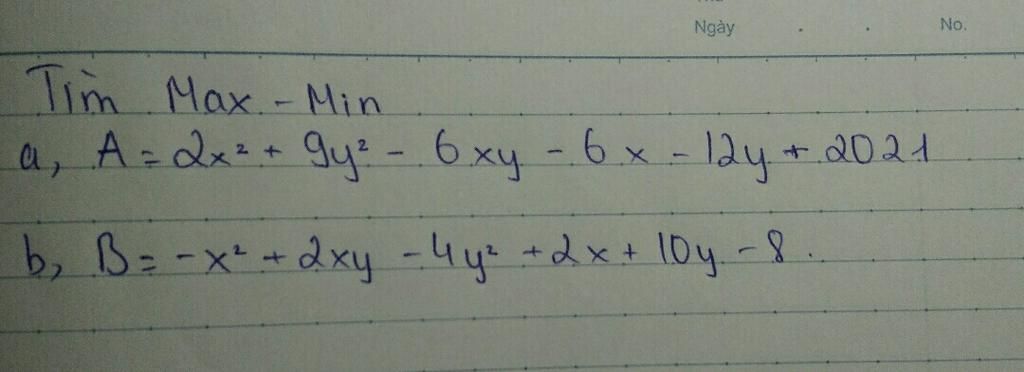 Ngày . . No.
Tìm Max - Min
a, A = 2x² + 9y² - 6xy - 6x - 12y + 2021
b, B = -x² + 2xy - 4y² + 2x + 10y - 8.